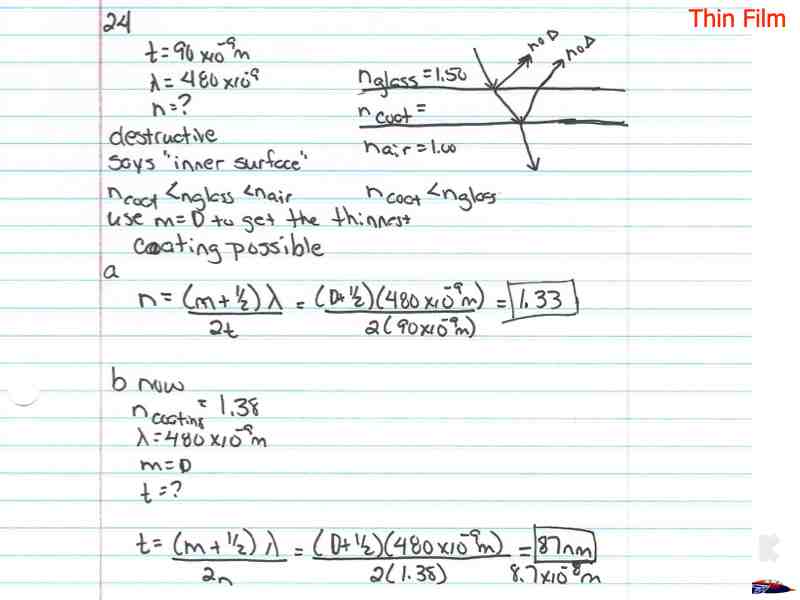 Thin Film
24
t = 90 x10⁻⁹m
λ = 480 x10⁻⁹
n = ?
destructive
says "inner surface"
n glass = 1.50
n coat =
n air = 1.00
no Δ
no Δ
n coat < n glass < n air
n coat < n glass
use m = 0 to get the thinnest
Coating possible
a
n = (m + 1/2) λ / 2t = (0 + 1/2)(480 x10⁻⁹ m) / 2(90 x10⁻⁹m) = 1.33
b now
n coating = 1.38
λ = 480 x10⁻⁹m
m = 0
t = ?
t = (m + 1/2) λ / 2n = (0 + 1/2)(480 x10⁻⁹ m) / 2(1.38) = 87nm
8.7 x10⁻⁸m